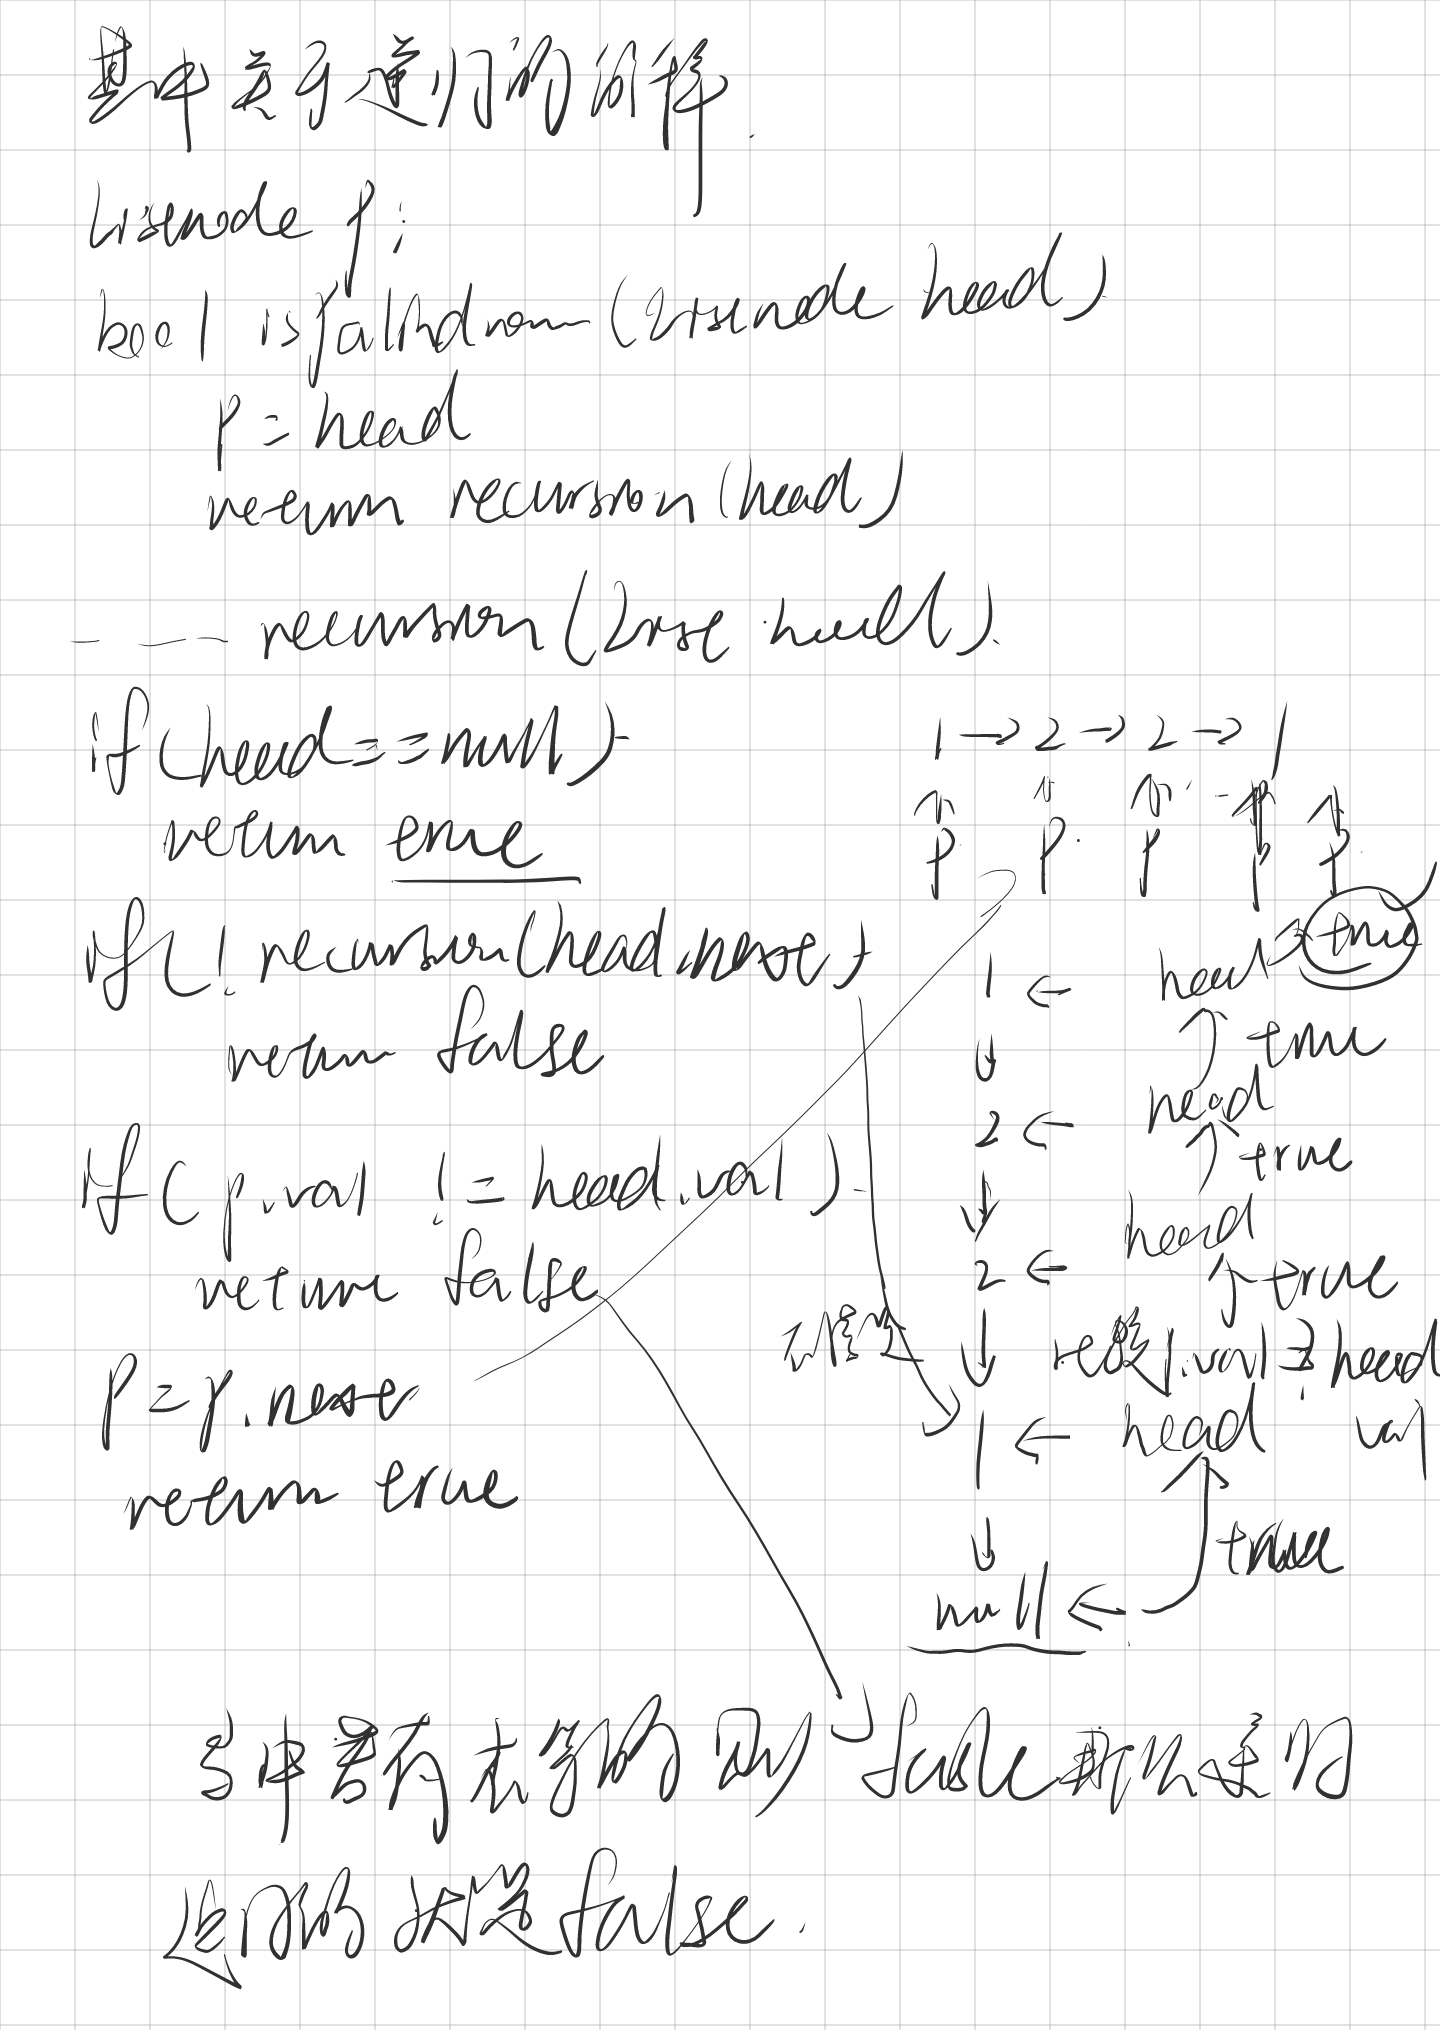 其中关于递归的解释.
Listnode p;
bool isPalindrom(Listnode head)
p = head
return recursion(head)
---- recursion(List head)
if(head==null)
return true
if(!recursion(head.next)
return false
if(p.val != head.val)
return false
p = p.next
return true
1→2→2→1
↑ ↑ ↑ ↑ ↑
p p p p p
1 ← head → true
↓ ↑ true
2 ← head
↓ ↑ true
2 ← head
↓ ↑ true
p.val head
1 ← head val
↓ ↑ true
null ←
当中若有不等的 则 false 那么递归
返回的 就是 false.